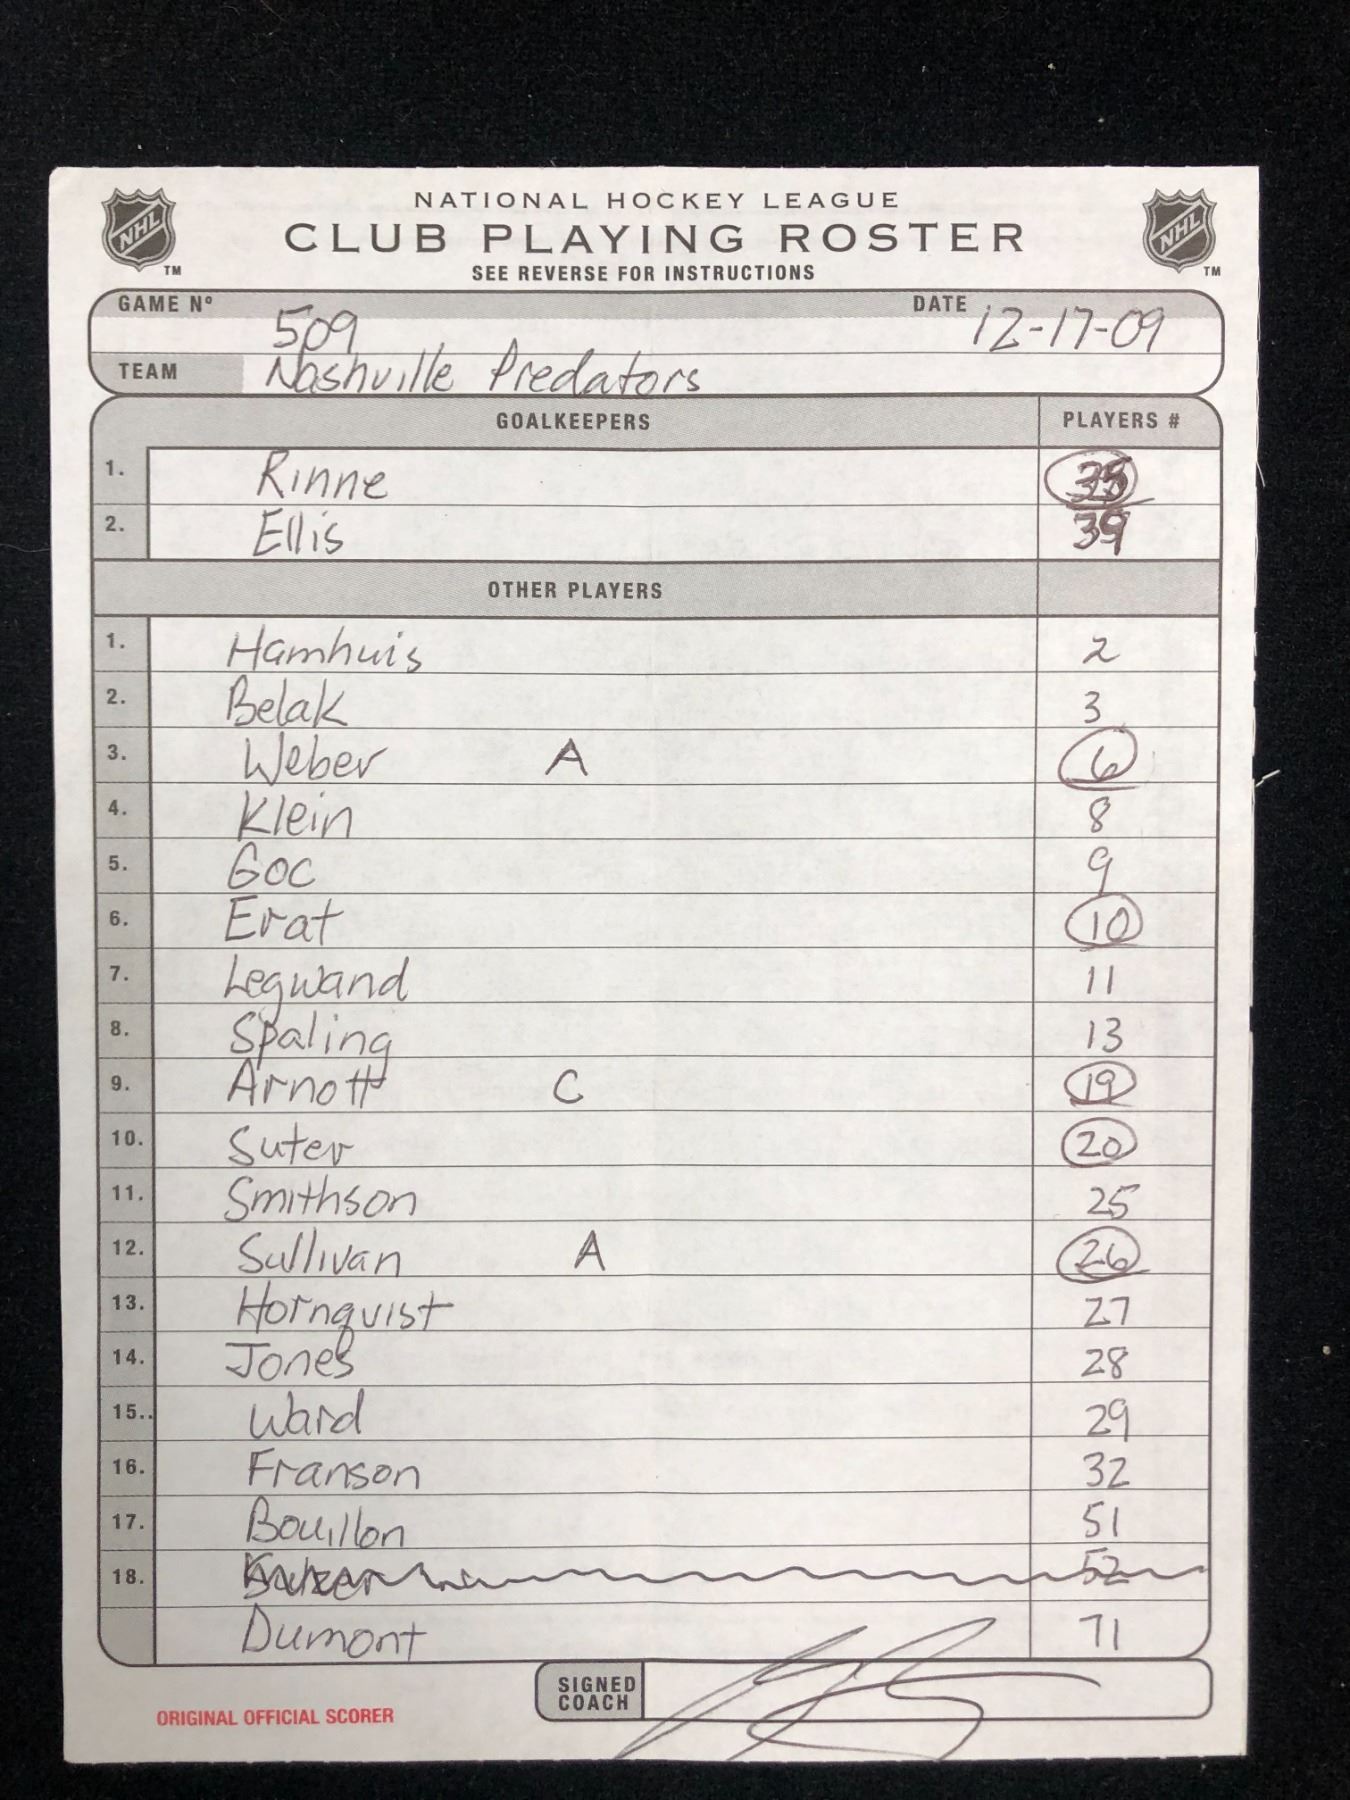 NATIONAL HOCKEY LEAGUE
NHL CLUB PLAYING ROSTER NHL
TM SEE REVERSE FOR INSTRUCTIONS TM
GAME Nº 509 DATE 12-17-09
TEAM Nashville Predators
GOALKEEPERS PLAYERS #
1. Rinne 35
2. Ellis 39
OTHER PLAYERS
1. Hamhuis 2
2. Belak 3
3. Weber A 6
4. Klein 8
5. Goc 9
6. Erat 10
7. Legwand 11
8. Spaling 13
9. Arnott C 19
10. Suter 20
11. Smithson 25
12. Sullivan A 26
13. Hornqvist 27
14. Jones 28
15. Ward 29
16. Franson 32
17. Bouillon 51
18. 52
Dumont 71
SIGNED
COACH
ORIGINAL OFFICIAL SCORER